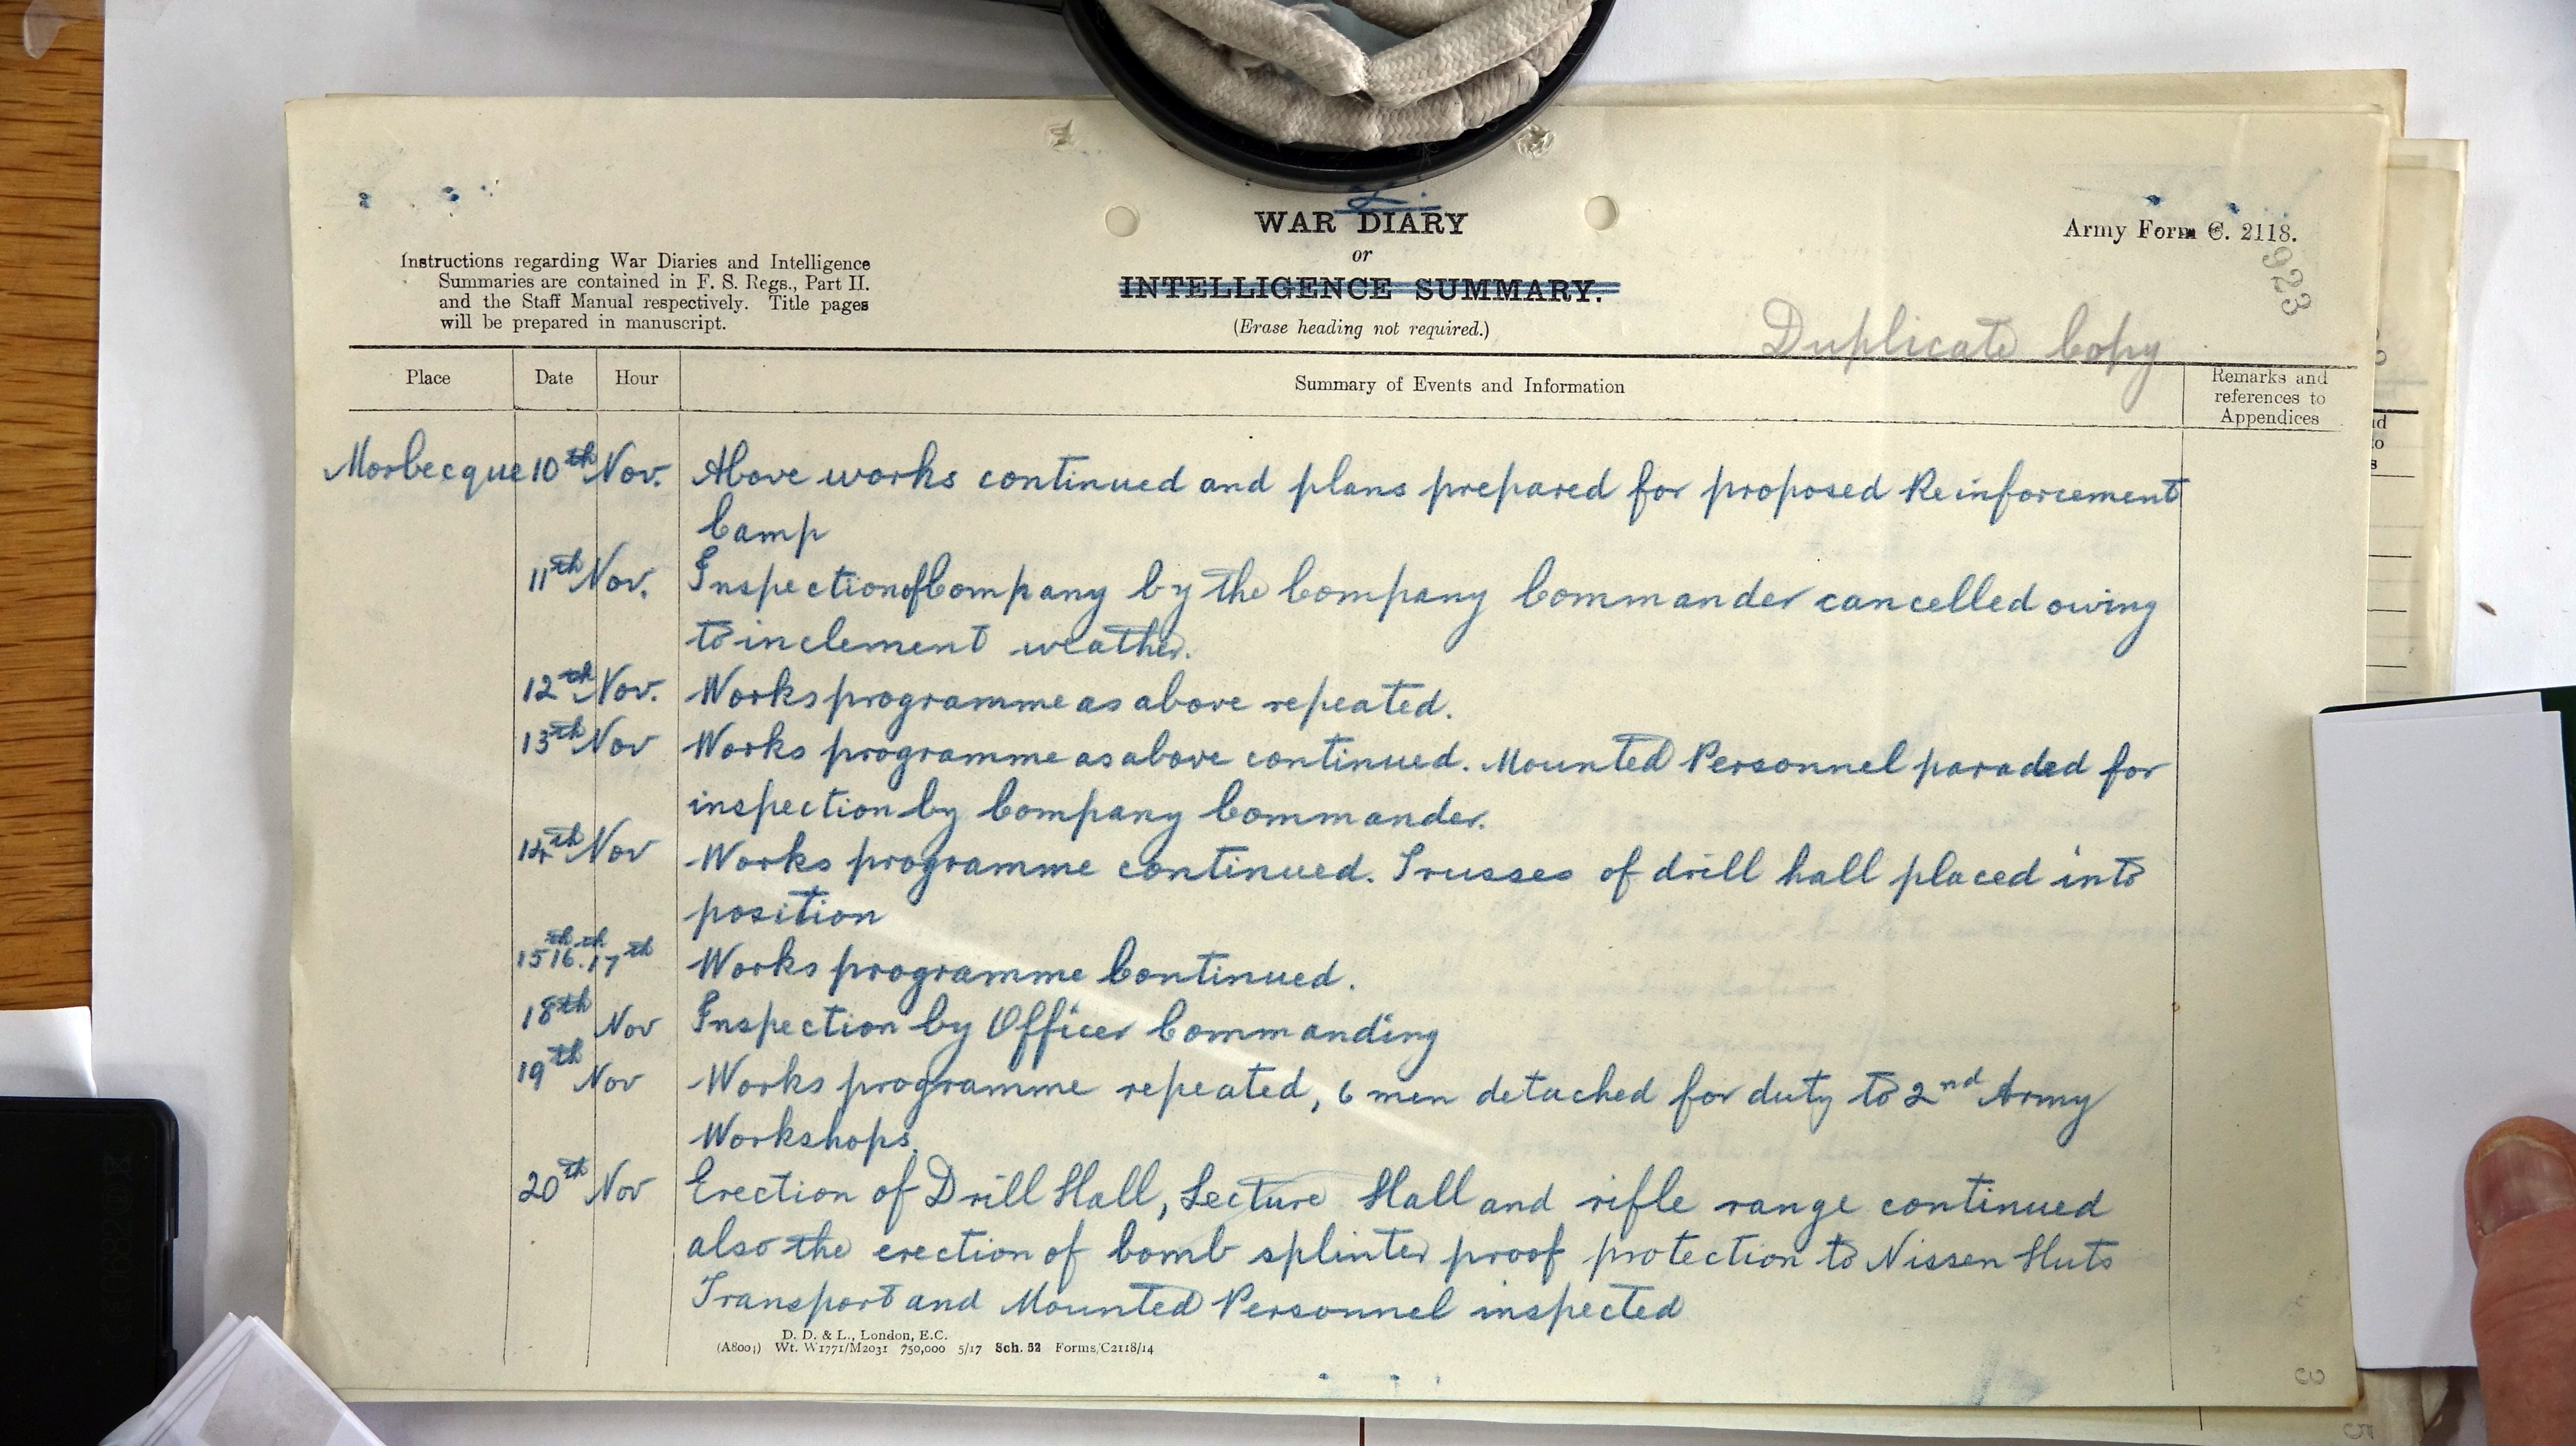 WAR DIARY
or
INTELLIGENCE SUMMARY.
(Erase heading not required.)
Army Form C. 2118.
923
Instructions regarding War Diaries and Intelligence
Summaries are contained in F. S. Regs., Part II.
and the Staff Manual respectively. Title pages
will be prepared in manuscript.
Duplicate Copy
Place Date Hour Summary of Events and Information Remarks and
references to
Appendices
Morbecque 10th Nov. Above works continued and plans prepared for proposed Reinforcement
Camp
11th Nov. Inspection of Company by the Company Commander cancelled owing
to inclement weather.
12th Nov. Works programme as above repeated.
13th Nov Works programme as above continued. Mounted Personnel paraded for
inspection by Company Commander.
14th Nov Works programme continued. Trusses of drill hall placed into
position
15th 16th. 17th Works programme Continued.
18th Nov Inspection by Officer Commanding
19th Nov Works programme repeated, 6 men detached for duty to 2nd Army
Workshops.
20th Nov Erection of Drill Hall, Lecture Hall and rifle range continued
also the erection of bomb splinter proof protection to Nissen Huts
Transport and Mounted Personnel inspected
D. D. & L., London, E.C.
(A8001) Wt. W1771/M2031 750,000 5/17 Sch. 52 Forms/C2118/14
3